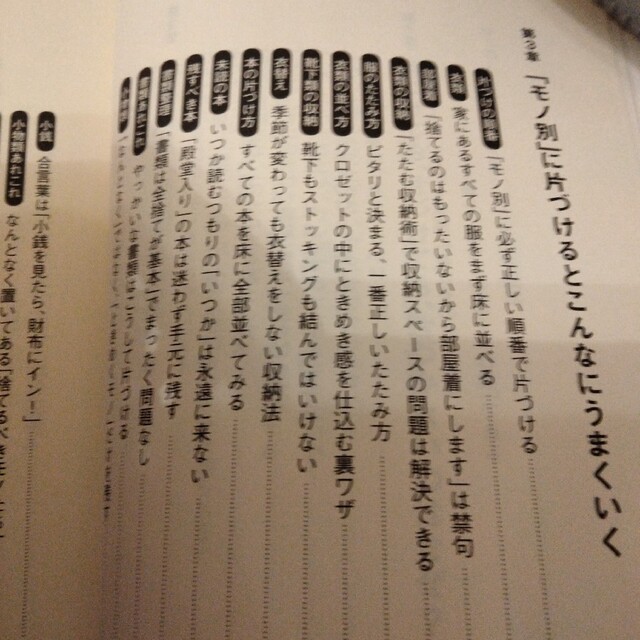 第3章 「モノ別」に片づけるとこんなにうまくいく
片づけの順番 「モノ別」に必ず正しい順番で片づける
衣類 家にあるすべての服をまず床に並べる
部屋着 「捨てるのはもったいないから部屋着にします」は禁句
衣類の収納 「たたむ収納術」で収納スペースの問題は解決できる
服のたたみ方 ピタリと決まる、一番正しいたたみ方
衣類の並べ方 クロゼットの中にときめき感を仕込む裏ワザ
靴下類の収納 靴下もストッキングも結んではいけない
衣替え 季節が変わっても衣替えをしない収納法
本の片づけ方 すべての本を床に全部並べてみる
未読の本 いつか読むつもりの「いつか」は永遠に来ない
残すべき本 「殿堂入り」の本は迷わず手元に残す
書類整理 「書類は全捨てが基本」でまったく問題なし
書類あれこれ やっかいな書類はこうして片づける
小銭 合言葉は「小銭を見たら、財布にイン!」
小物類あれこれ なんとなく置いてある「捨てるべきモノたち」